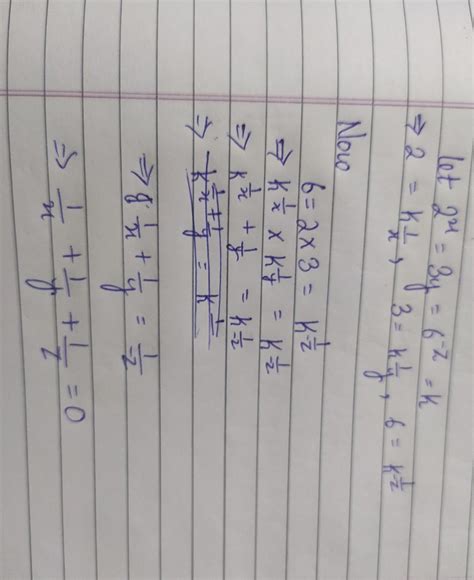 let 2^x = 3^y = 6^-z = k
⇒ 2 = k^(1/x), 3 = k^(1/y), 6 = k^(1/-z)
Now
6 = 2 × 3 = k^(1/-z)
⇒ k^(1/x) × k^(1/y) = k^(1/-z)
⇒ k^(1/x + 1/y) = k^(1/-z)
⇒ 1/x + 1/y = 1/-z
⇒ 1/x + 1/y + 1/z = 0